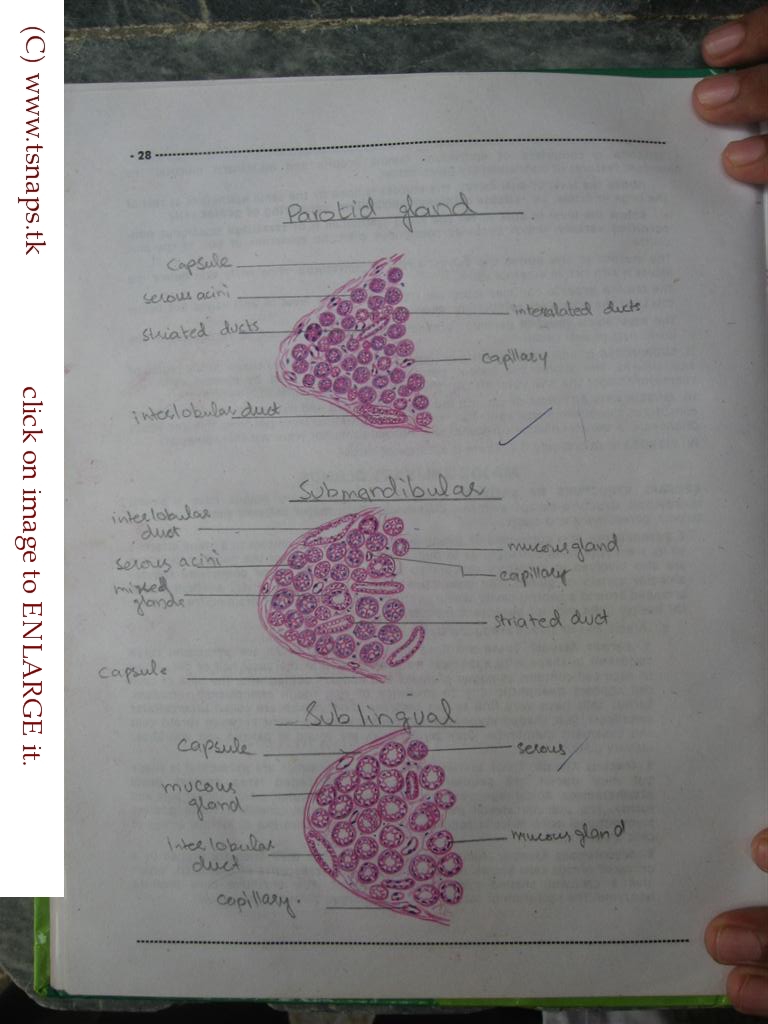 (C) www.tsnaps.tk
click on image to ENLARGE it.
- 28
Parotid gland
capsule
serous acini
striated ducts
interlobular duct
interalated ducts
capillary
Submandibular
interlobular
duct
serous acini
mixed
glands
capsule
mucous gland
capillary
striated duct
Sublingual
capsule
mucous
gland
Interlobular
duct
capillary.
serous
mucous gland